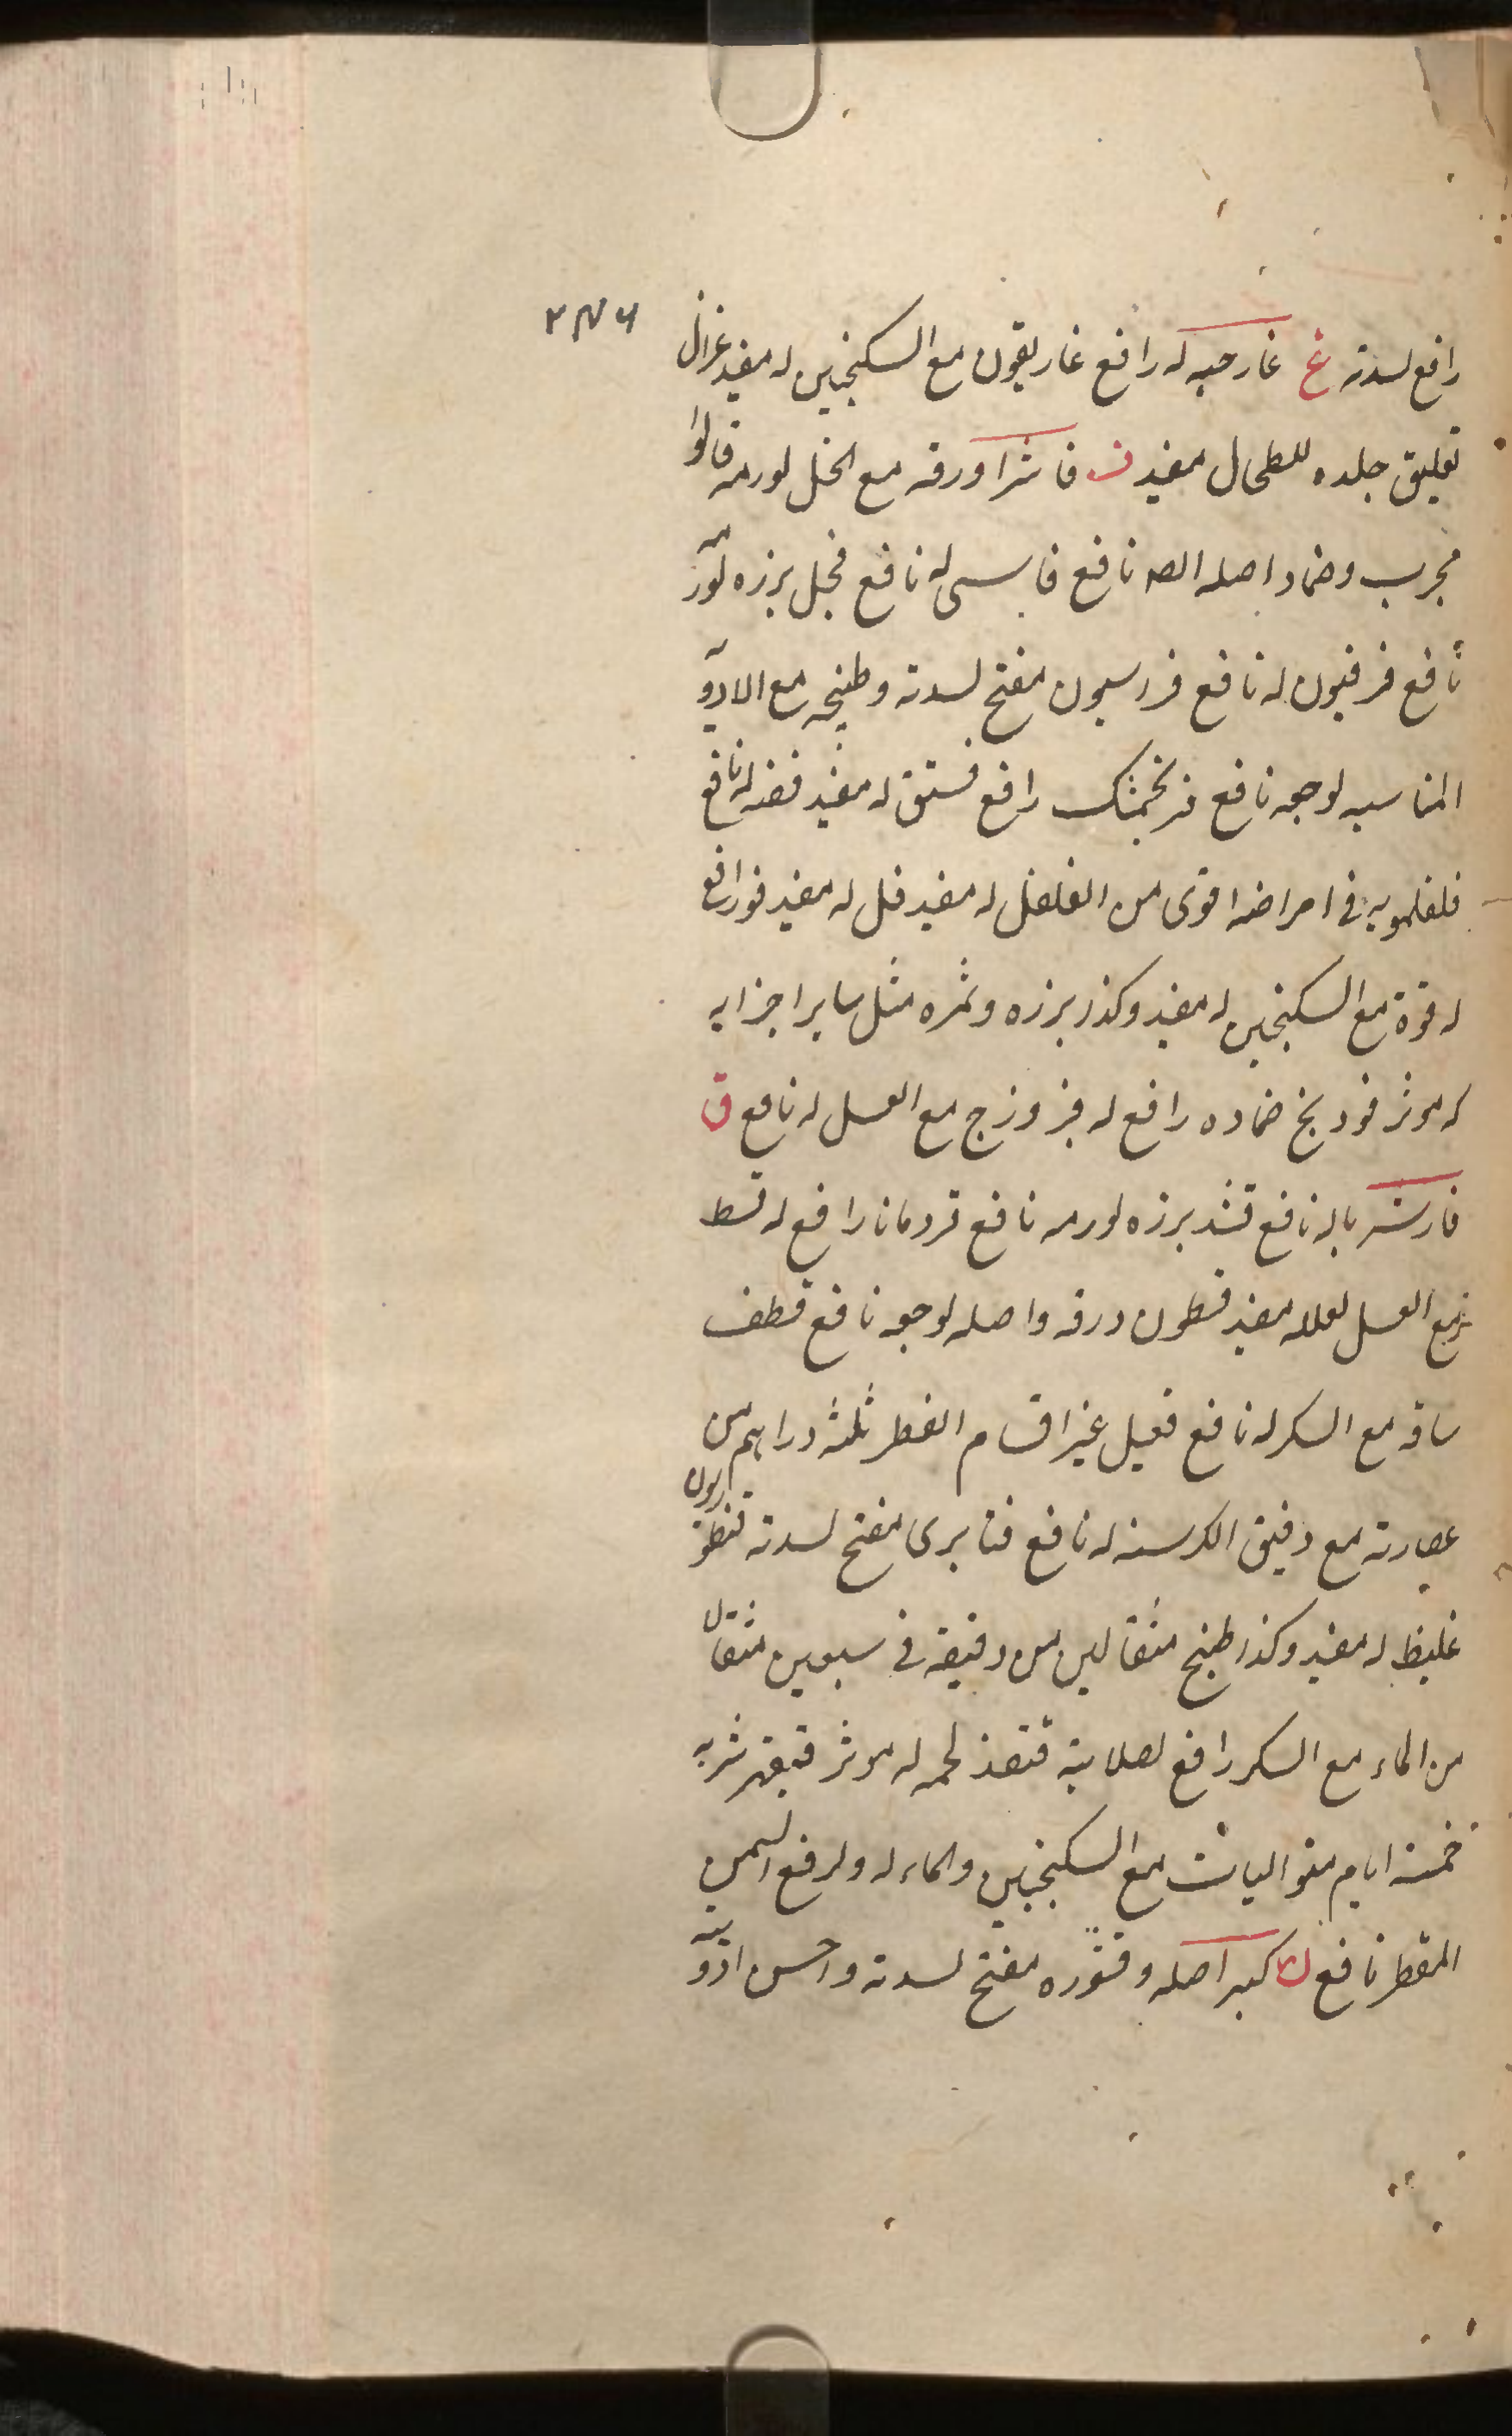 ٢٣٦
رافع لسدته غ غار حبه له رافع غاريقون مع السكنجبين له مفيد غزال
تعليق جلده للطحال مفيد ف فاشرا ورقه مع الخل لورمه قالوا
مجرب وضماد اصله له نافع فجل بزره لورمه
نافع فرفيون له نافع فراسيون مفتح لسدته وطبيخه مع الادوية
المناسبه لوجعه نافع فرنجمشك رافع فستق له مفيد فضه له نافع
فلفلمويه في امراضه اقوى من الفلفل له مفيد فل له مفيد فو رافع
له فوة مع السكنجبين له مفيد وكذا بزره وثمره مثل ساير اجزايه
له موثر فودنج ضماده رافع له فيروزج مع العسل له نافع ق
نافع قثد بزره لورمه نافع قردمانا رافع له قسط
مع العسل لعلله مفيد ورقه واصله لوجعه نافع قطف
ساقه مع السكر له نافع قعبل غير اقسام الفطر ثلثه دراهم من
عصارته مع دقيق الكرسنه له نافع قنابرى مفتح لسدته قنطوريون
غليظ له مفيد وكذا طبخ مثقالين من دقيقه في سبعين مثقال
من الماء مع السكر رافع لصلابته قنفذ لحمه له موثر قيقهر شربه
خمسة ايام متواليات مع السكنجبين والماء له ولرفع السمن
المفطر نافع ك كبر اصله وقشوره مفتح لسدته واحسن ادويه